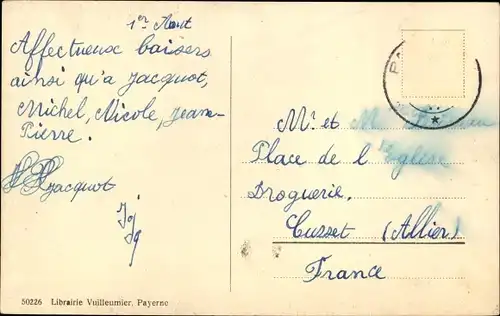 1er Août
Affectueux baisers
ainsi qu'a Jacquot,
Michel, Nicole, Jean-
Pierre.
Jacquot
Mr et M
Place de l'Eglise
Droguerie.
Cusset (Allier)
France
50226 Librairie Vuilleumier, Payerne